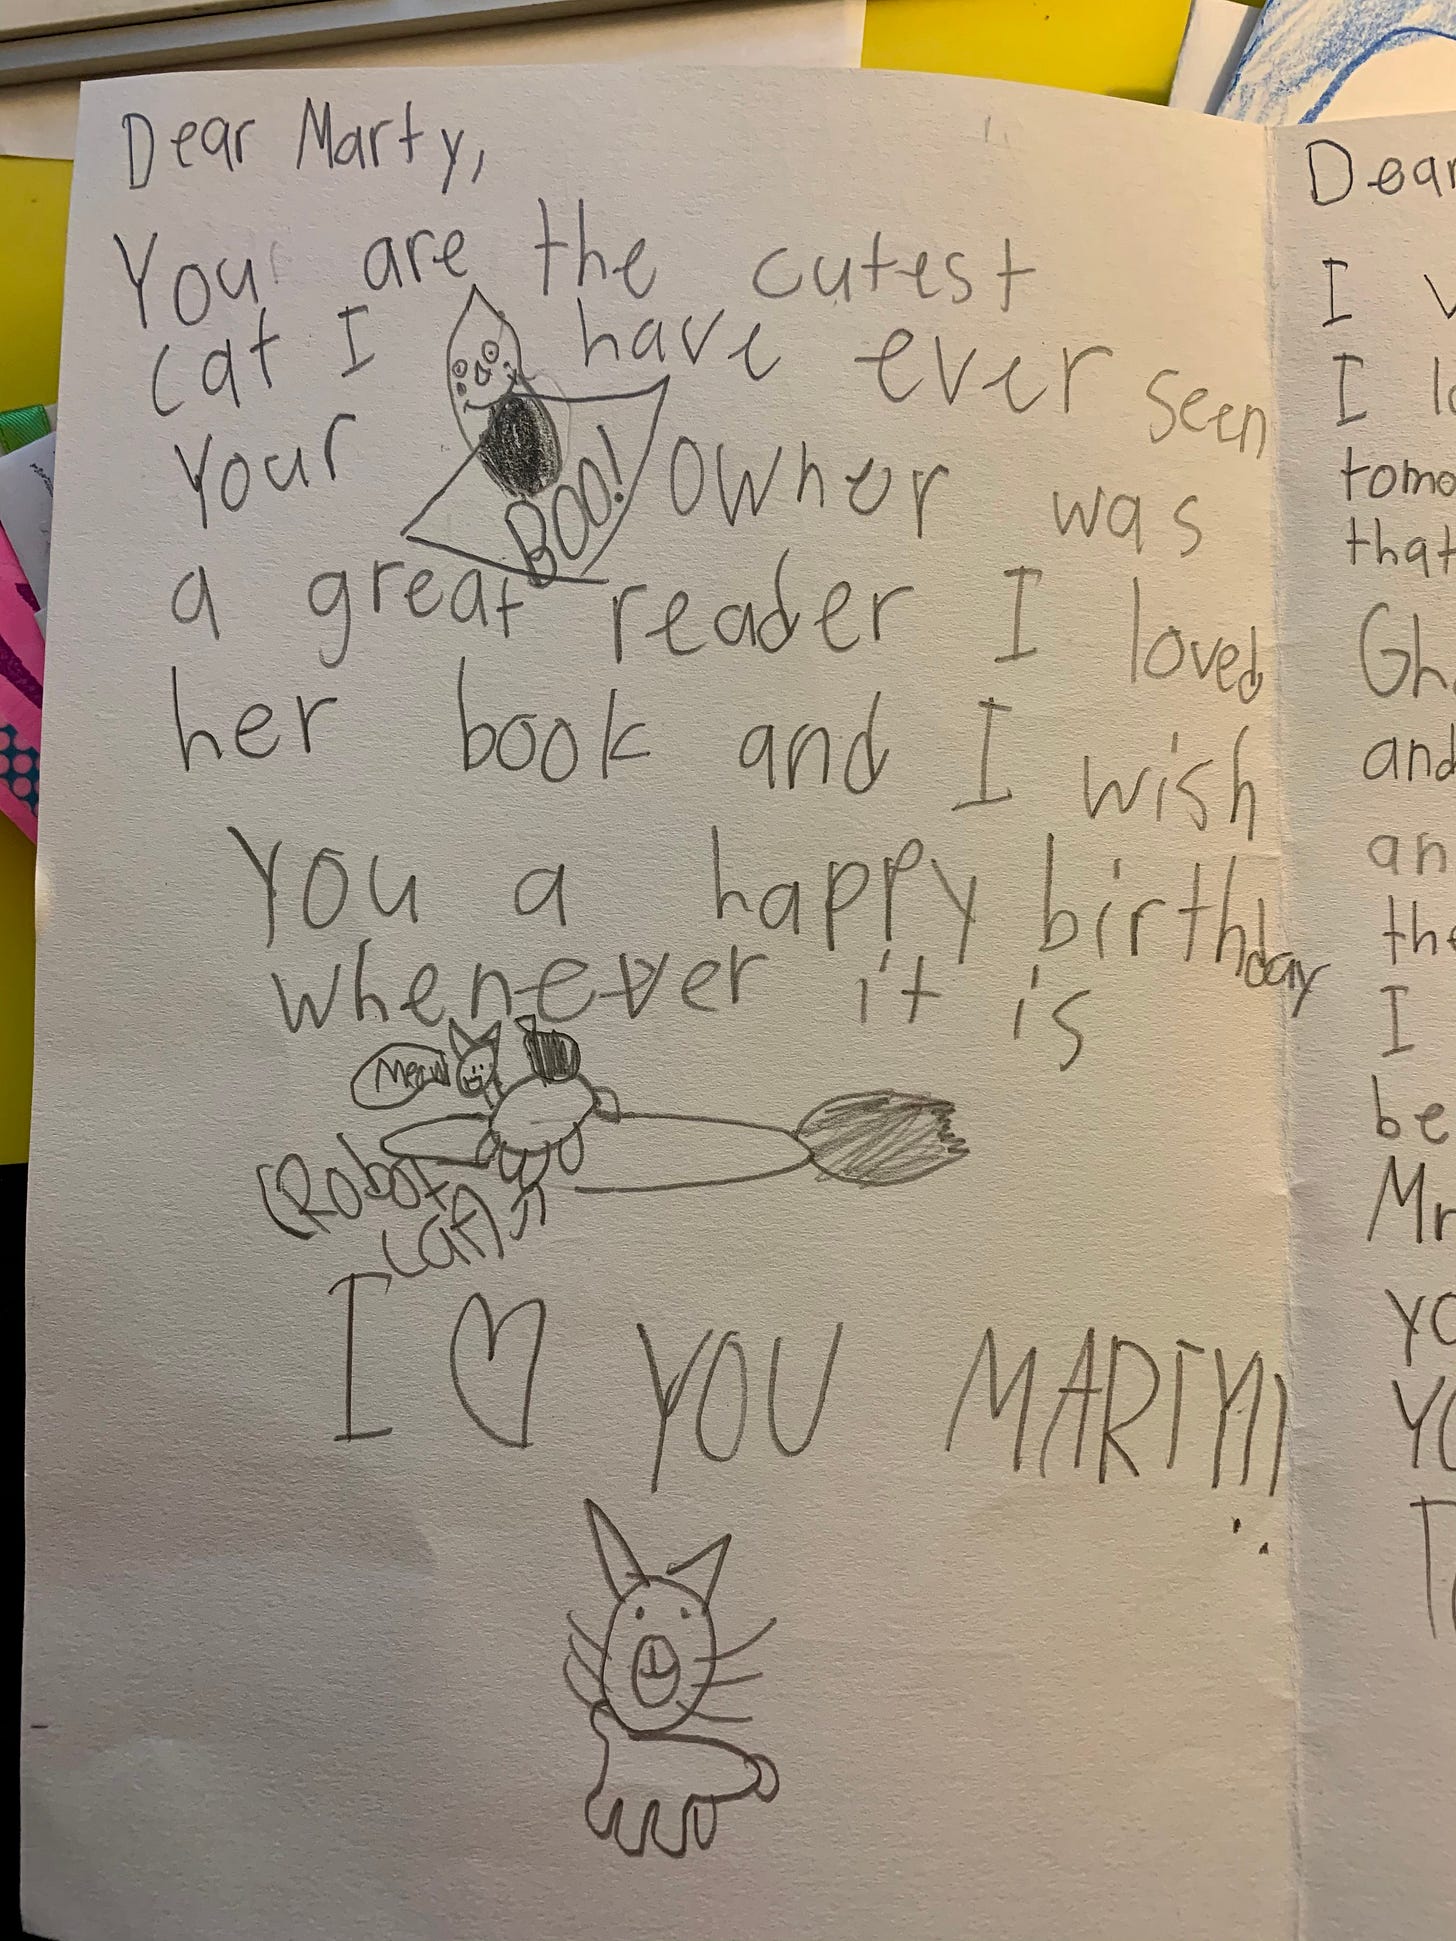 Dear Marty,
You are the cutest
cat I have ever seen
your owner was
BOO!
a great reader I loved
her book and I wish
you a happy birthday
whenever it is
Meow
(Robot
cat)
I ♡ YOU MARTY!!
Dear
I
I
tomo
that
Gh
and
an
the
I
be
Mr
yo
Yo